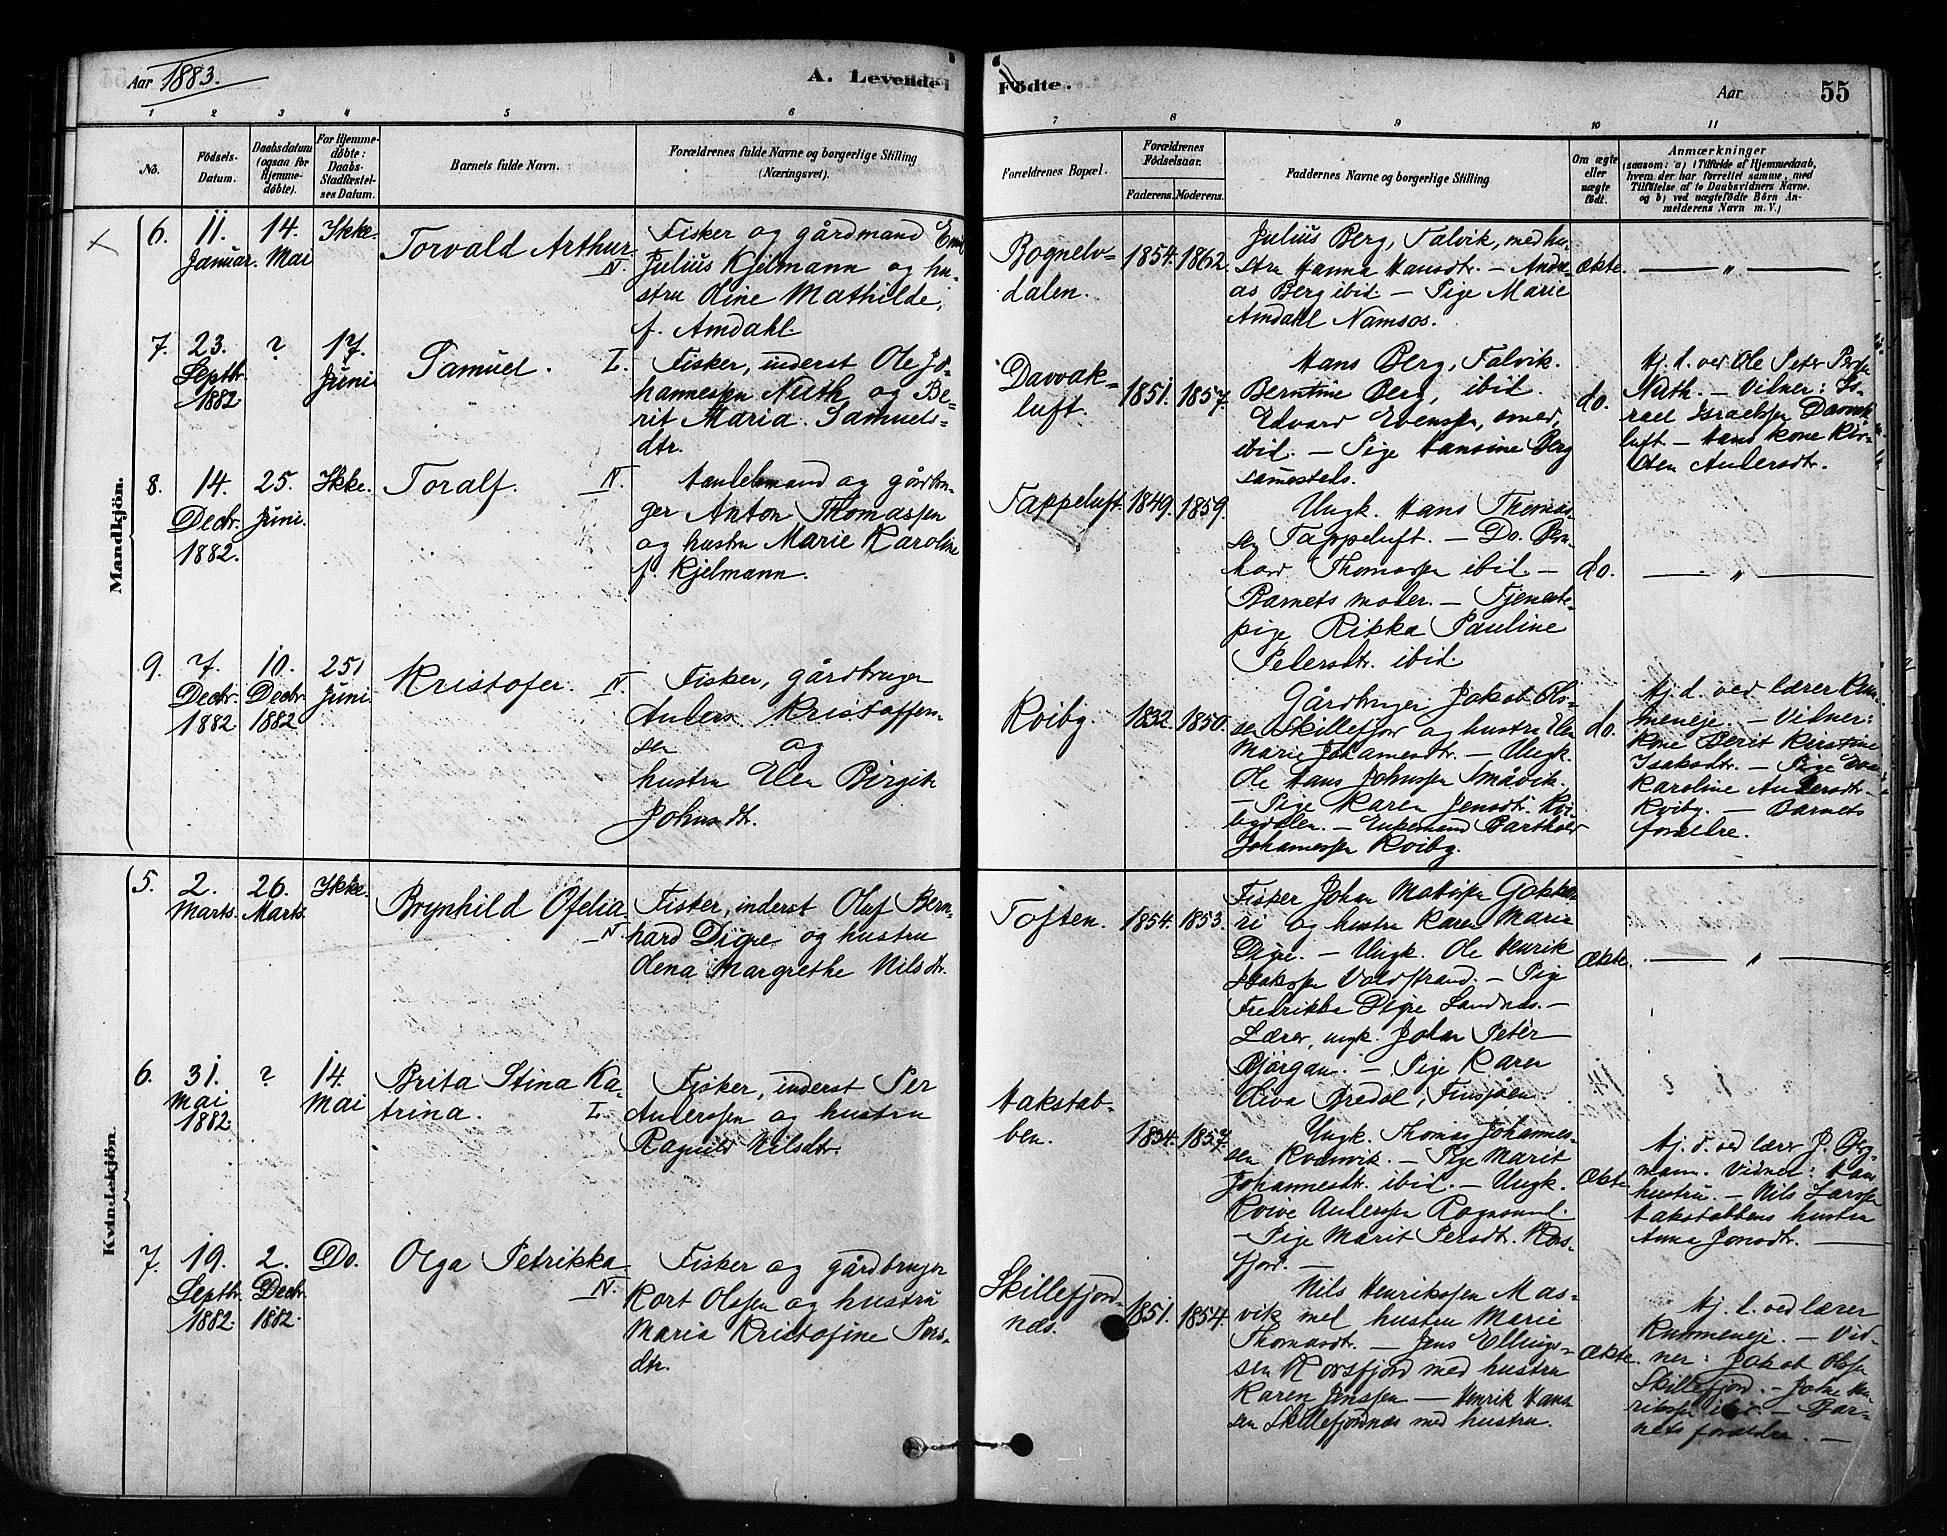 Aar 1883.
A. Levende
Födte.
Aar
55
1 2 3 4 5 6 7 8 9 10 11
No.
Födsels-
Datum.
Daabsdatum
(ogsaa for
Hjemme-
döbte).
For Hjemme-
döbte:
Daabs-
Stadfæstel-
ses Datum.
Barnets fulde Navn.
Forældrenes fulde Navne og borgerlige Stilling
(Næringsvei).
Forældrenes Bopæl.
Forældrenes
Födselsaar.
Faderens.
Moderens.
Faddernes Navne og borgerlige Stilling
Om ægte
eller
uægte
født.
Anmærkninger
(saasom: a) i Tilfælde af Hjemmedaab,
hvem der har forrettet samme, med
Tilföielse af to Daabsvidners Navne.
og b) ved uægtefödte Börn An-
melderens Navn m. V.)
Mandkjön.
6.
11.
Januar.
14.
Mai
Ikke.
Torvald Arthur
N.
Fisker og gårdmand Emil
Julius Kjelmann og hu-
stru Oline Mathilde,
f. Amdahl.
Bognelv-
dalen.
1854. 1862.
Julius Berg, Talvik, med hu-
stru Hanna Hansdtr. — Andre-
as Berg ibid — Pige Marie
Amdahl Namsos.
Ækte.
— „ —
7.
23.
Septbr.
1882
?
17.
Juni
Samuel.
L.
Fisker, inderst Ole Jo-
hannessen Nuth og Be-
rit Maria Samuels-
dtr.
Davvak-
luft.
1851. 1857.
Hans Berg, Talvik.
Berntine Berg, ibid.
Edvard Evensen, smed,
ibid — Pige Hansine Berg
samesteds.
do.
Hj. d. ved Ole Peter Persen
Nuth. — Vidner: Is-
rael Israelssen Davvak-
luft. — Hans kone Kir-
sten Andersdtr.
8.
14.
Decbr.
1882.
25.
Juni.
Ikke.
Toralf.
N.
Handelsmand og gårdbru-
ger Anton Thomassen
og hustru Marie Karoline
f. Kjelmann.
Tappeluft.
1849. 1859.
Ungk. Hans Thomas-
sen Tappeluft. — Do. Bern-
hard Thomassen ibid. —
Barnets moder. — Tjeneste-
pige Rikka Pauline
Pedersdtr. ibid.
do.
— „ —
9.
7.
Decbr.
1882
10.
Decbr.
1882
25.
Juni.
Kristofer.
N.
Fisker, gårdbruger
Anders Kristoffer-
sen og
hustru Elen Birgit
Johnsdtr.
Kviby.
1832. 1850.
Gårdbruger Jakob Ols-
sen Skillefjor og hustru Elen
Marie Johannesdtr. — Ungk.
Ole Hans Johnssen Småvik.
— Pige Karen Jensdtr. Kvi-
bydalen. — Enkemand Barthold
Johannessen Kviby.
do.
Hj. d. ved lærer Kum-
meneje. — Vidner:
Kone Berit Kirstine
Isaksdtr. — Pige Eva
Karoline Andersdtr.
Kviby. — Barnets
forældre.
Kvindekjön.
5.
2.
Marts.
26.
Marts.
Ikke.
Brynhild Ofelia
N.
Fisker, inderst Oluf Bern-
hard Digre og hustru
Olena Margrethe Nilsdtr.
Toften.
1854. 1853.
Fisker Johan Mathisen
og hustru Karen Marie
Digre. — Ungk. Ole Henrik
Isaksen Voldstrand. — Pige
Fredrikka Digre Sandnæs. —
Lærer, ungk. Johan Peter
Bjørgan. — Pige Karen
Ækte.
— „ —
6.
31.
Mai
1882.
?
14.
Mai
Brita Stina Ka-
trina.
L.
Fisker, inderst Per
Anderssen og hustru
Ragnild Nilsdtr.
Hakstab-
ben.
1854. 1857.
Ungk. Thomas Johannes-
sen Kvænvik. — Pige Marit
Johannesdtr. ibid. — Ungk.
Anderssen Rognsund.
— Pige Marit Persdtr. Kors-
fjord. —
Ækte
Hj. d. ved lærer J. Berg-
mann. Vidner: Hans
hustru. — Nils Larssen
Hakstabbens hustru
Anna Jonsdtr. —
7.
19.
Septbr.
1882.
2.
Decbr.
1882.
Do.
Olga Petrikka
N.
Fisker og gårdbruger
Kort Olssen og hustru
Maria Kristofine Pers-
dtr.
Skillefjord-
næs.
1851. 1854.
Nils Henrikssen Mas-
vik med hustru Marie
Thomasdtr. — Jens Elling-
sen Korsfjord med hustru
Karen Jenssen — Henrik Hans-
sen Skillefjordnæs med hustru.
Ækte.
Hj. d. ved lærer
Kummeneje. — Vid-
ner: Jakob Olssen
Skillefjord. — John Hen-
rikssen ibid. — Bar-
nets forældre. —